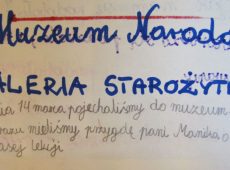 Muzeum Narodo
ALERIA STAROŻYT
ia 14 marca pojechaliśmy do muzeum
mieliśmy przygodę pani Monika o
lekcji